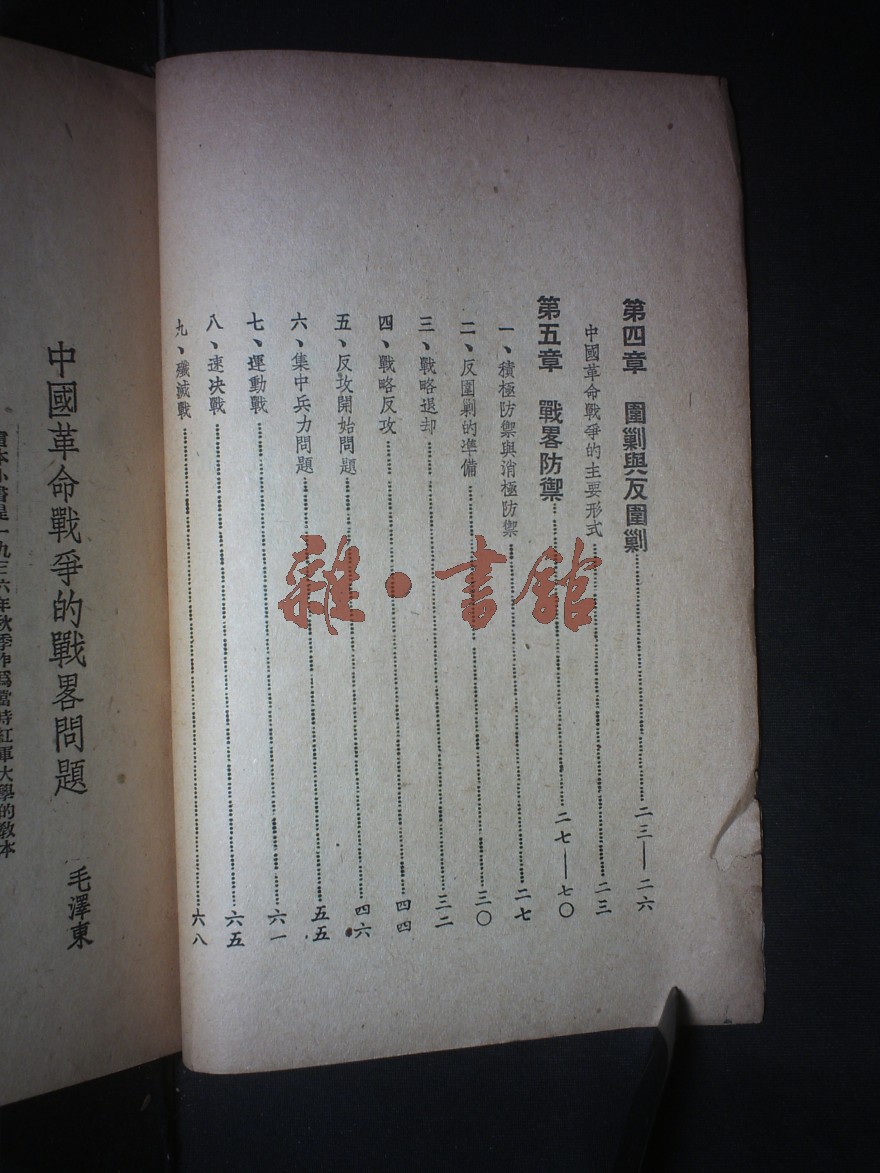 第四章　圍剿與反圍剿……二三—二六
中國革命戰爭的主要形式……二三
第五章　戰畧防禦……二七—七〇
一、積極防禦與消極防禦……二七
二、反圍剿的準備……三〇
三、戰略退却……三二
四、戰略反攻……四四
五、反攻開始問題……四六
六、集中兵力問題……五五
七、運動戰……六一
八、速決戰……六五
九、殲滅戰……六八
雜·書館
中國革命戰爭的戰畧問題
毛澤東
小書是一九三六年秋季作爲當時紅軍大學的教本